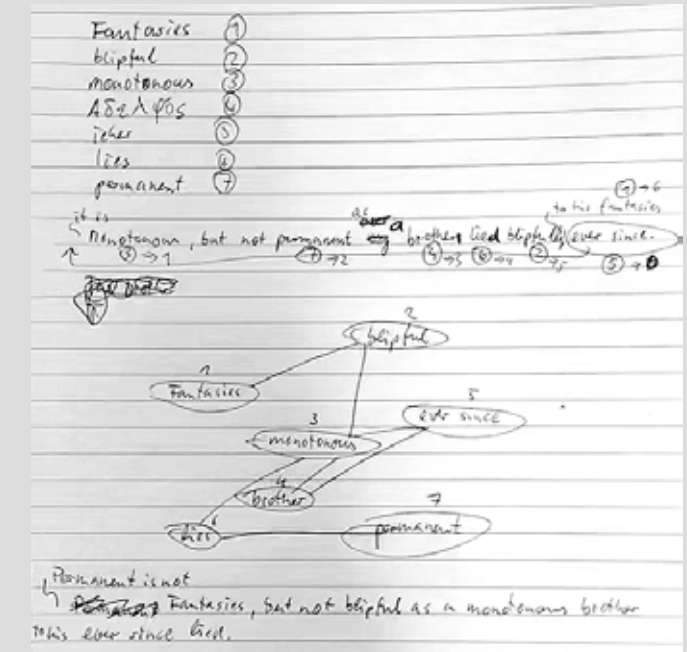 Fantasies 1
blipful 2
monotonous 3
Αδελφός 4
5
lies 6
permanent 7
1 → 6
it is to his fantasies
monotonous, but not permanent as a brother lied blipfully ever since.
3 → 1 7 → 2 4 → 3 6 → 4 2 → 5 5 →
2
blipful
1
Fantasies
5
ever since
3
monotonous
4
brother
7
6
lies permanent
Permanent is not
Fantasies, but not blipful as a monotonous brother
to his ever since lied.